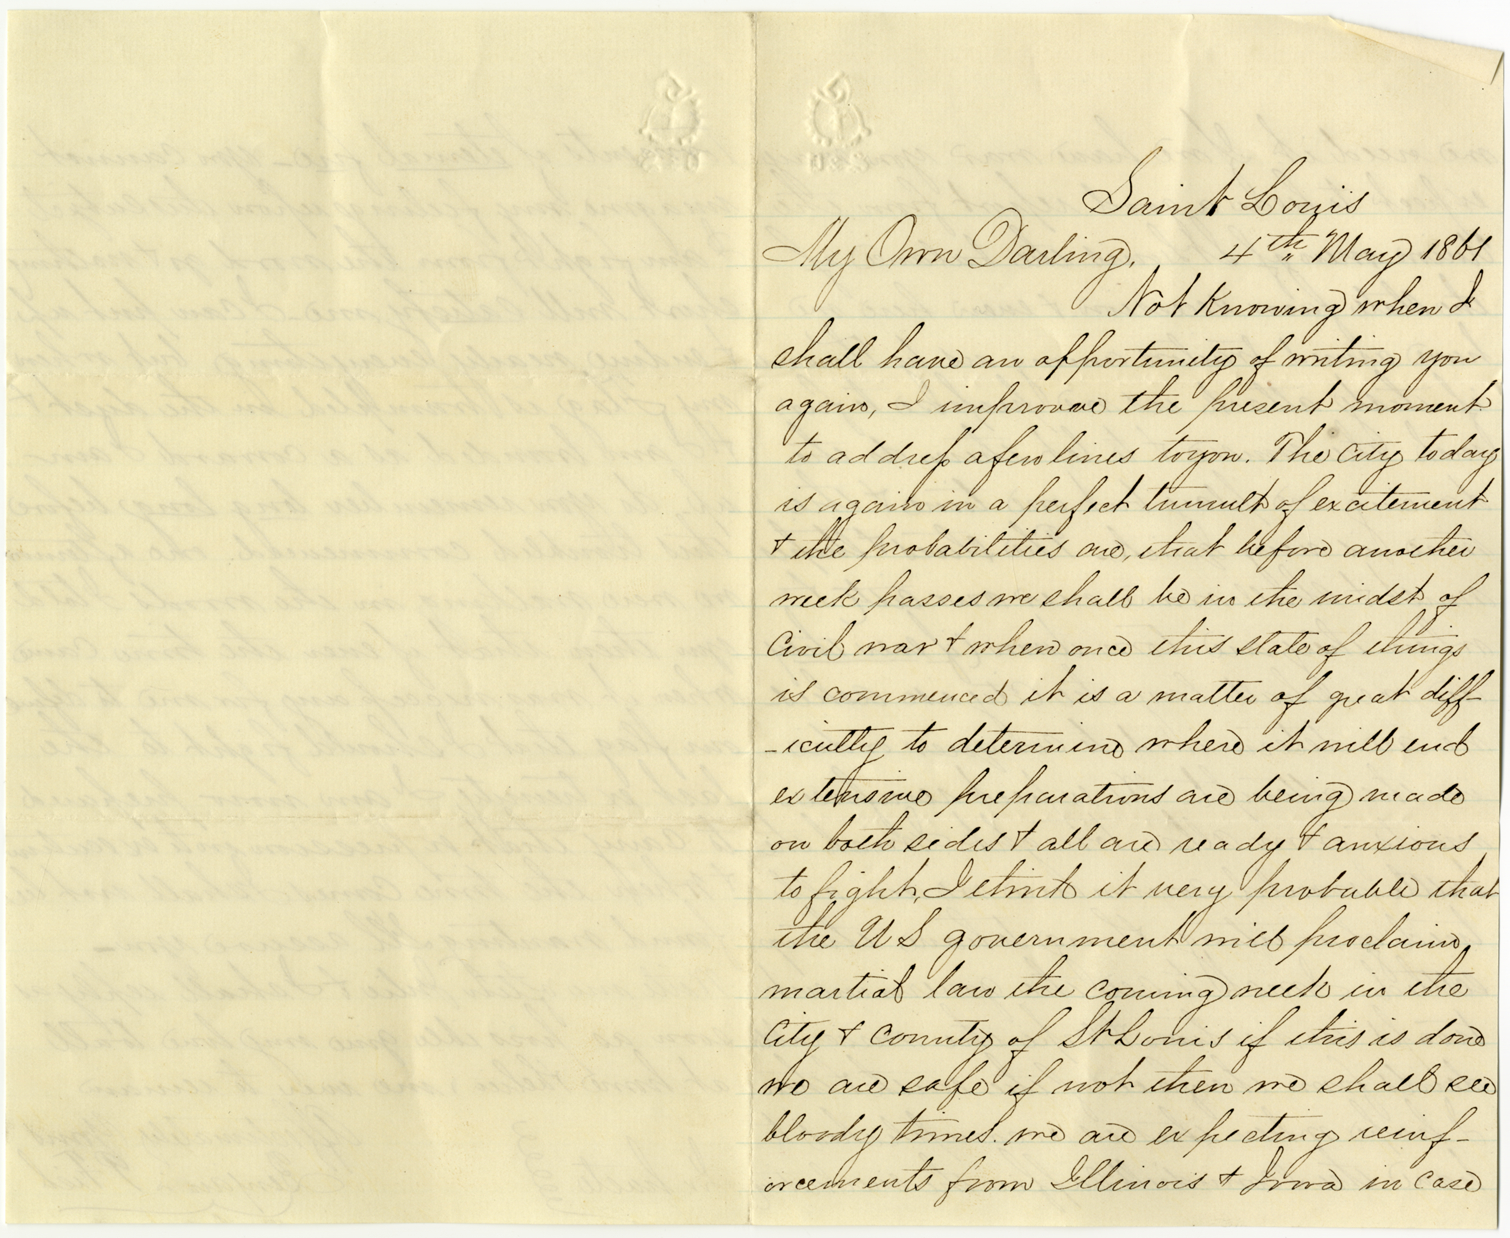 Saint Louis
My Own Darling. 4th May 1861
Not Knowing when I
shall have an opportunity of writing you
again, I improve the present moment
to address a few lines to you. The City today
is again in a perfect tumult of excitement
& the probabilities are, that before another
week passes we shall be in the midst of
Civil war & when once this state of things
is commenced it is a matter of great diff-
-iculty to determine where it will end
extensive preparations are being made
on both sides & all are ready & anxious
to fight, I think it very probable that
the US government will proclaim
martial law the coming week in the
City & County of St Louis if this is done
we are safe if not then we shall see
bloody times. we are expecting reinf-
orcements from Illinois & Iowa in case